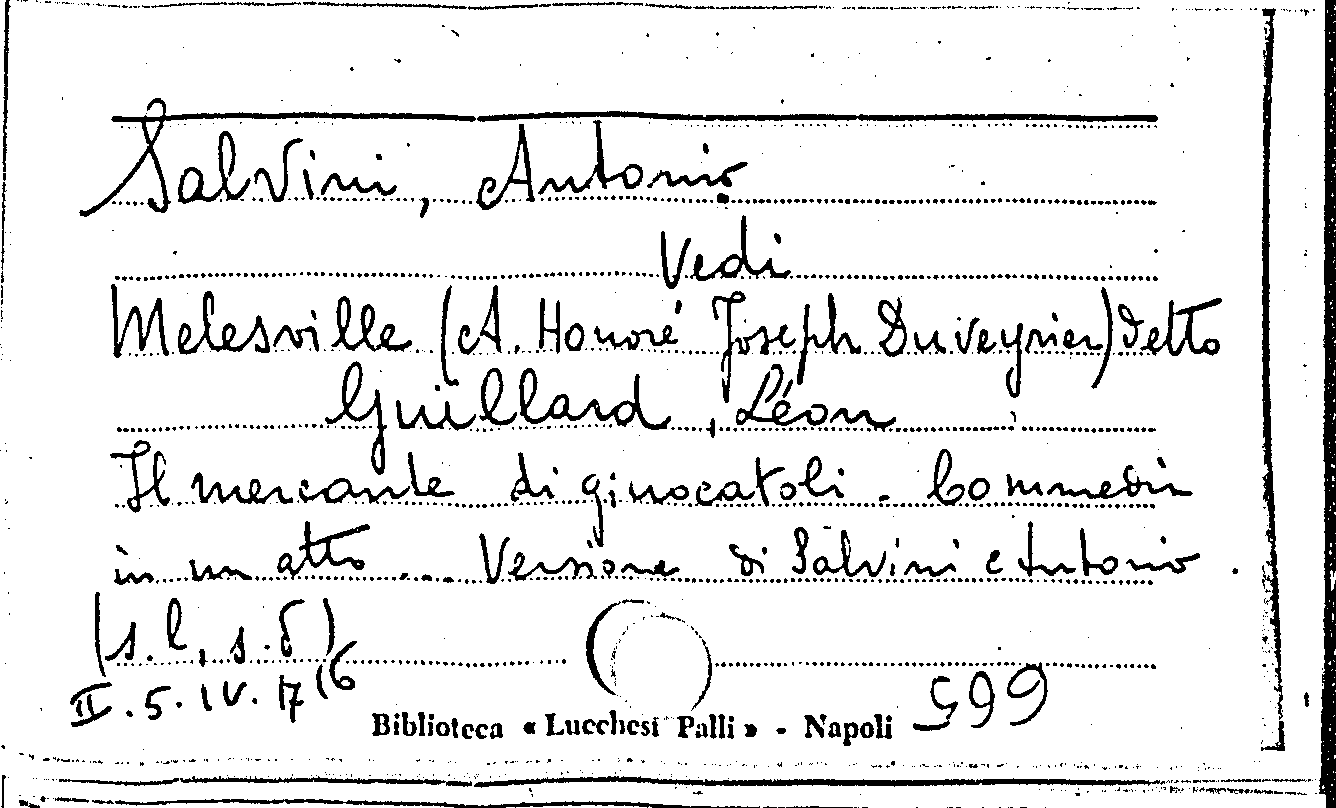 Salvini, Antonio
Vedi
Melesville (A. Honoré Joseph Duveyrier) detto
Guillard, Léon
Il mercante di giuocatoli. Commedia
in un atto... Versione di Salvini Antonio.
(s.l, s.d)
II.5.IV.17 (6
Biblioteca « Lucchesi Palli » - Napoli
599